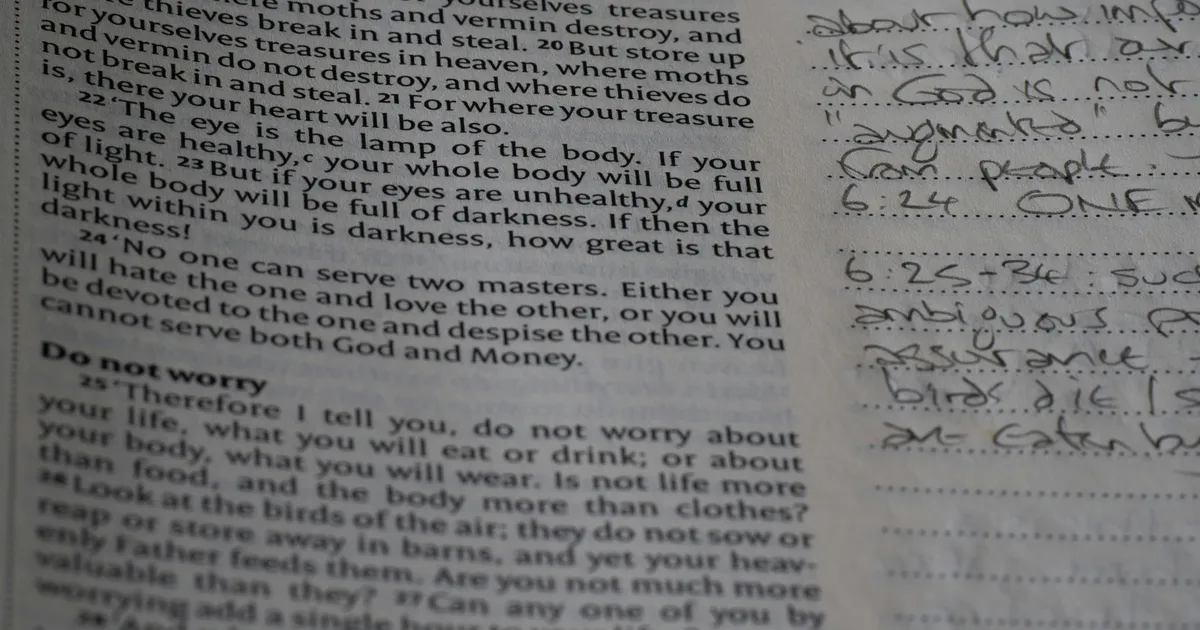 yourselves treasures
moths and vermin destroy, and
thieves break in and steal. 20 But store up
for yourselves treasures in heaven, where moths
and vermin do not destroy, and where thieves do
not break in and steal. 21 For where your treasure
is, there your heart will be also.
22 ‘The eye is the lamp of the body. If your
eyes are healthy,c your whole body will be full
of light. 23 But if your eyes are unhealthy,d your
whole body will be full of darkness. If then the
light within you is darkness, how great is that
darkness!
24 ‘No one can serve two masters. Either you
will hate the one and love the other, or you will
be devoted to the one and despise the other. You
cannot serve both God and Money.
Do not worry
25 ‘Therefore I tell you, do not worry about
your life, what you will eat or drink; or about
your body, what you will wear. Is not life more
than food, and the body more than clothes?
26 Look at the birds of the air; they do not sow or
reap or store away in barns, and yet your heav-
enly Father feeds them. Are you not much more
valuable than they? 27 Can any one of you by
worrying add a single hour to your life?
about how
it is that
in God is not
"augmented"
from people.
6:24 ONE
6:25-34:
ambiguous
assurance
birds die
eaten